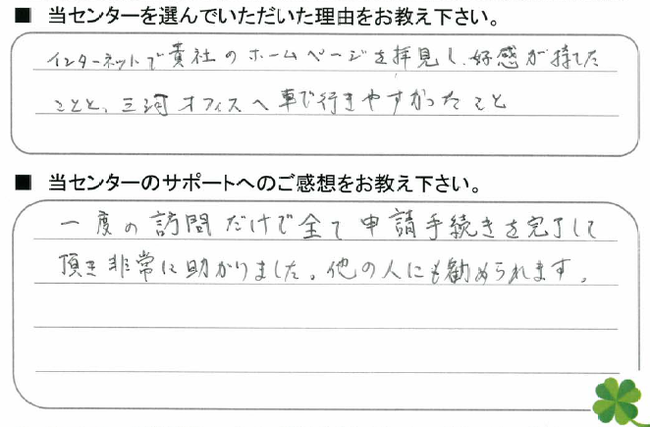 ■ 当センターを選んでいただいた理由をお教え下さい。
インターネットで貴社のホームページを拝見し、好感が持てた
ことと、三河オフィスへ車で行きやすかったこと
■ 当センターのサポートへのご感想をお教え下さい。
一度の訪問だけで全て申請手続きを完了して
頂き非常に助かりました。他の人にも勧められます。